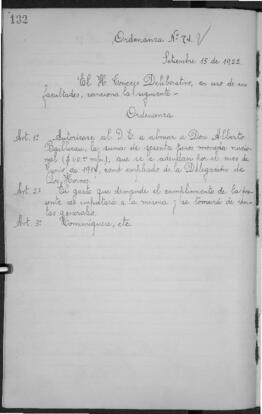 132
Ordenanza Nº 74
Setiembre 15 de 1922.
El H. Concejo Deliberativo, en uso de sus
facultades, sanciona la siguiente -
Ordenanza
Art. 1º Autorízase al D. E. a abonar a Don Alberto
la suma de sesenta pesos moneda nacio
nal que se le adeudan por el mes de
Junio de como empleado de la Delegación de
Art. 2º El gasto que demande el cumplimiento de la pre
sente se imputará a la misma y se tomará de ren
tas generales.
Art. 3º Comuníquese, etc.